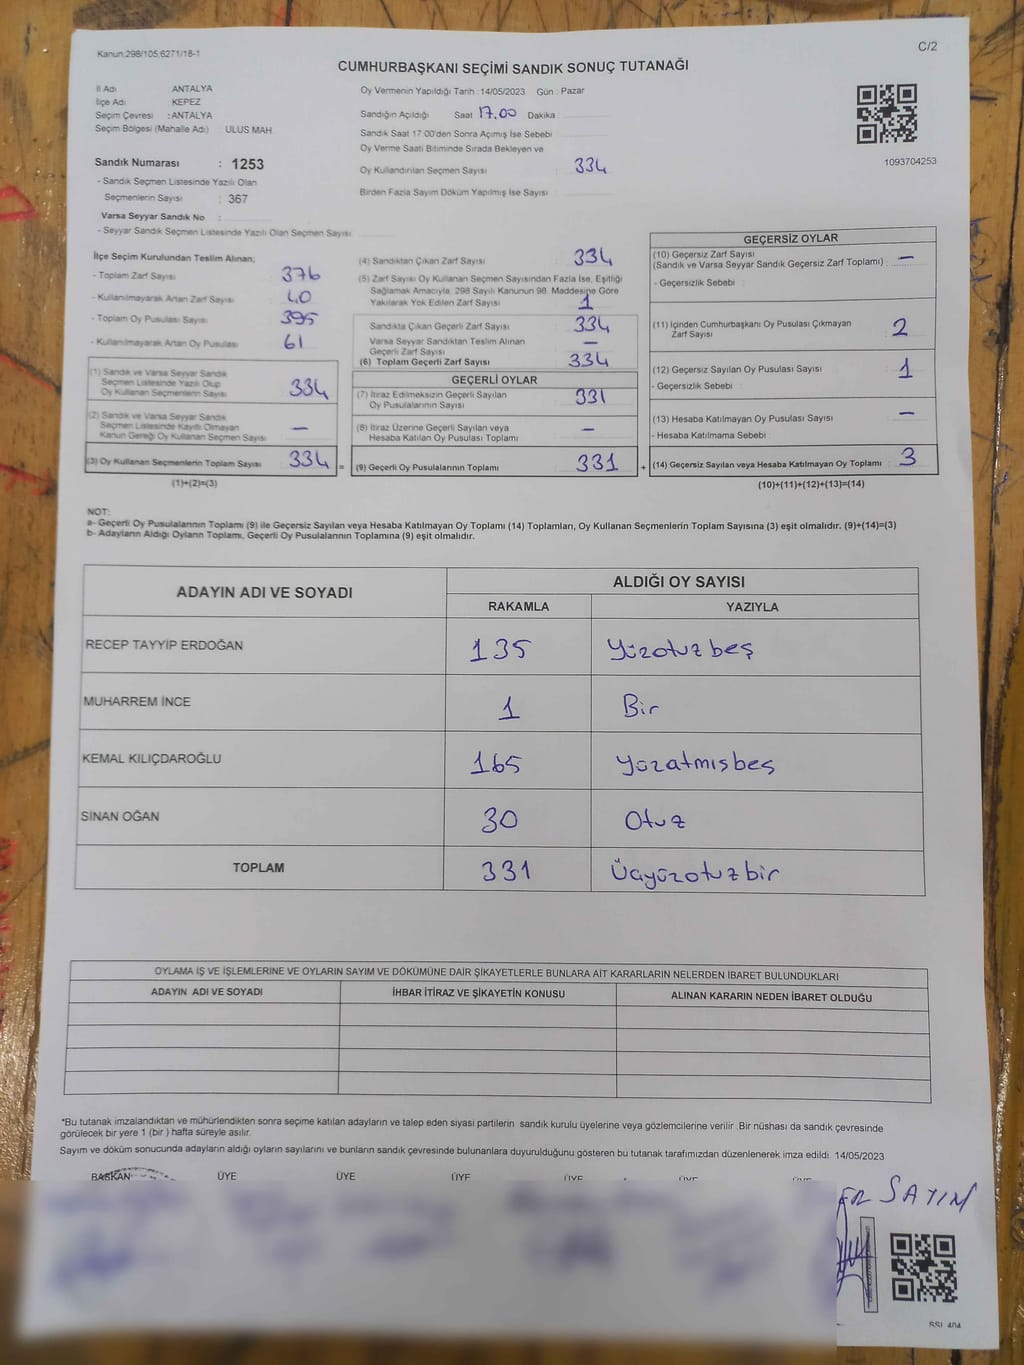 Kanun:298/105,6271/18-1
C/2
CUMHURBAŞKANI SEÇİMİ SANDIK SONUÇ TUTANAĞI
İl Adı : ANTALYA
İlçe Adı : KEPEZ
Seçim Çevresi : ANTALYA
Seçim Bölgesi (Mahalle Adı) : ULUS MAH.
Sandık Numarası : 1253
- Sandık Seçmen Listesinde Yazılı Olan
Seçmenlerin Sayısı : 367
Varsa Seyyar Sandık No :
- Seyyar Sandık Seçmen Listesinde Yazılı Olan Seçmen Sayısı :
Oy Vermenin Yapıldığı Tarih : 14/05/2023 Gün : Pazar
Sandığın Açıldığı Saat 17.00 Dakika :
Sandık Saat 17:00'den Sonra Açımış İse Sebebi
Oy Verme Saati Bitiminde Sırada Bekleyen ve
Oy Kullandırılan Seçmen Sayısı : 334
Birden Fazla Sayım Döküm Yapılmış İse Sayısı :
1093704253
İlçe Seçim Kurulundan Teslim Alınan;
- Toplam Zarf Sayısı : 376
- Kullanılmayarak Artan Zarf Sayısı : 40
- Toplam Oy Pusulası Sayısı : 395
- Kullanılmayarak Artan Oy Pusulası : 61
(1) Sandık ve Varsa Seyyar Sandık
Seçmen Listesinde Yazılı Olup
Oy Kullanan Seçmenlerin Sayısı : 334
(2) Sandık ve Varsa Seyyar Sandık
Seçmen Listesinde Kayıtlı Olmayan
Kanun Gereği Oy Kullanan Seçmen Sayısı : —
(3) Oy Kullanan Seçmenlerin Toplam Sayısı : 334 =
(1)+(2)=(3)
(4) Sandıktan Çıkan Zarf Sayısı : 334
(5) Zarf Sayısı Oy Kullanan Seçmen Sayısından Fazla İse, Eşitliği
Sağlamak Amacıyla, 298 Sayılı Kanunun 98. Maddesine Göre
Yakılarak Yok Edilen Zarf Sayısı : 1
Sandıkta Çıkan Geçerli Zarf Sayısı : 334
Varsa Seyyar Sandıktan Teslim Alınan
Geçerli Zarf Sayısı : —
(6) Toplam Geçerli Zarf Sayısı : 334
GEÇERLİ OYLAR
(7) İtiraz Edilmeksizin Geçerli Sayılan
Oy Pusulalarının Sayısı : 331
(8) İtiraz Üzerine Geçerli Sayılan veya
Hesaba Katılan Oy Pusulası Toplamı : —
(9) Geçerli Oy Pusulalarının Toplamı : 331 +
GEÇERSİZ OYLAR
(10) Geçersiz Zarf Sayısı
(Sandık ve Varsa Seyyar Sandık Geçersiz Zarf Toplamı) : —
- Geçersizlik Sebebi :
(11) İçinden Cumhurbaşkanı Oy Pusulası Çıkmayan
Zarf Sayısı : 2
(12) Geçersiz Sayılan Oy Pusulası Sayısı : 1
- Geçersizlik Sebebi :
(13) Hesaba Katılmayan Oy Pusulası Sayısı : —
- Hesaba Katılmama Sebebi :
(14) Geçersiz Sayılan veya Hesaba Katılmayan Oy Toplamı : 3
(10)+(11)+(12)+(13)=(14)
NOT:
a- Geçerli Oy Pusulalarının Toplamı (9) ile Geçersiz Sayılan veya Hesaba Katılmayan Oy Toplamı (14) Toplamları, Oy Kullanan Seçmenlerin Toplam Sayısına (3) eşit olmalıdır. (9)+(14)=(3)
b- Adayların Aldığı Oyların Toplamı, Geçerli Oy Pusulalarının Toplamına (9) eşit olmalıdır.
ADAYIN ADI VE SOYADI
ALDIĞI OY SAYISI
RAKAMLA YAZIYLA
RECEP TAYYİP ERDOĞAN 135 Yüzotuzbeş
MUHARREM İNCE 1 Bir
KEMAL KILIÇDAROĞLU 165 Yüzatmışbeş
SİNAN OĞAN 30 Otuz
TOPLAM 331 Üçyüzotuzbir
OYLAMA İŞ VE İŞLEMLERİNE VE OYLARIN SAYIM VE DÖKÜMÜNE DAİR ŞİKAYETLERLE BUNLARA AİT KARARLARIN NELERDEN İBARET BULUNDUKLARI
ADAYIN ADI VE SOYADI İHBAR İTİRAZ VE ŞİKAYETİN KONUSU ALINAN KARARIN NEDEN İBARET OLDUĞU
*Bu tutanak imzalandıktan ve mühürlendikten sonra seçime katılan adayların ve talep eden siyasi partilerin sandık kurulu üyelerine veya gözlemcilerine verilir .Bir nüshası da sandık çevresinde
görülecek bir yere 1 (bir ) hafta süreyle asılır.
Sayım ve döküm sonucunda adayların aldığı oyların sayılarını ve bunların sandık çevresinde bulunanlara duyurulduğunu gösteren bu tutanak tarafımızdan düzenlenerek imza edildi. 14/05/2023
BAŞKAN ÜYE ÜYE ÜYE ÜYE
SAYIM